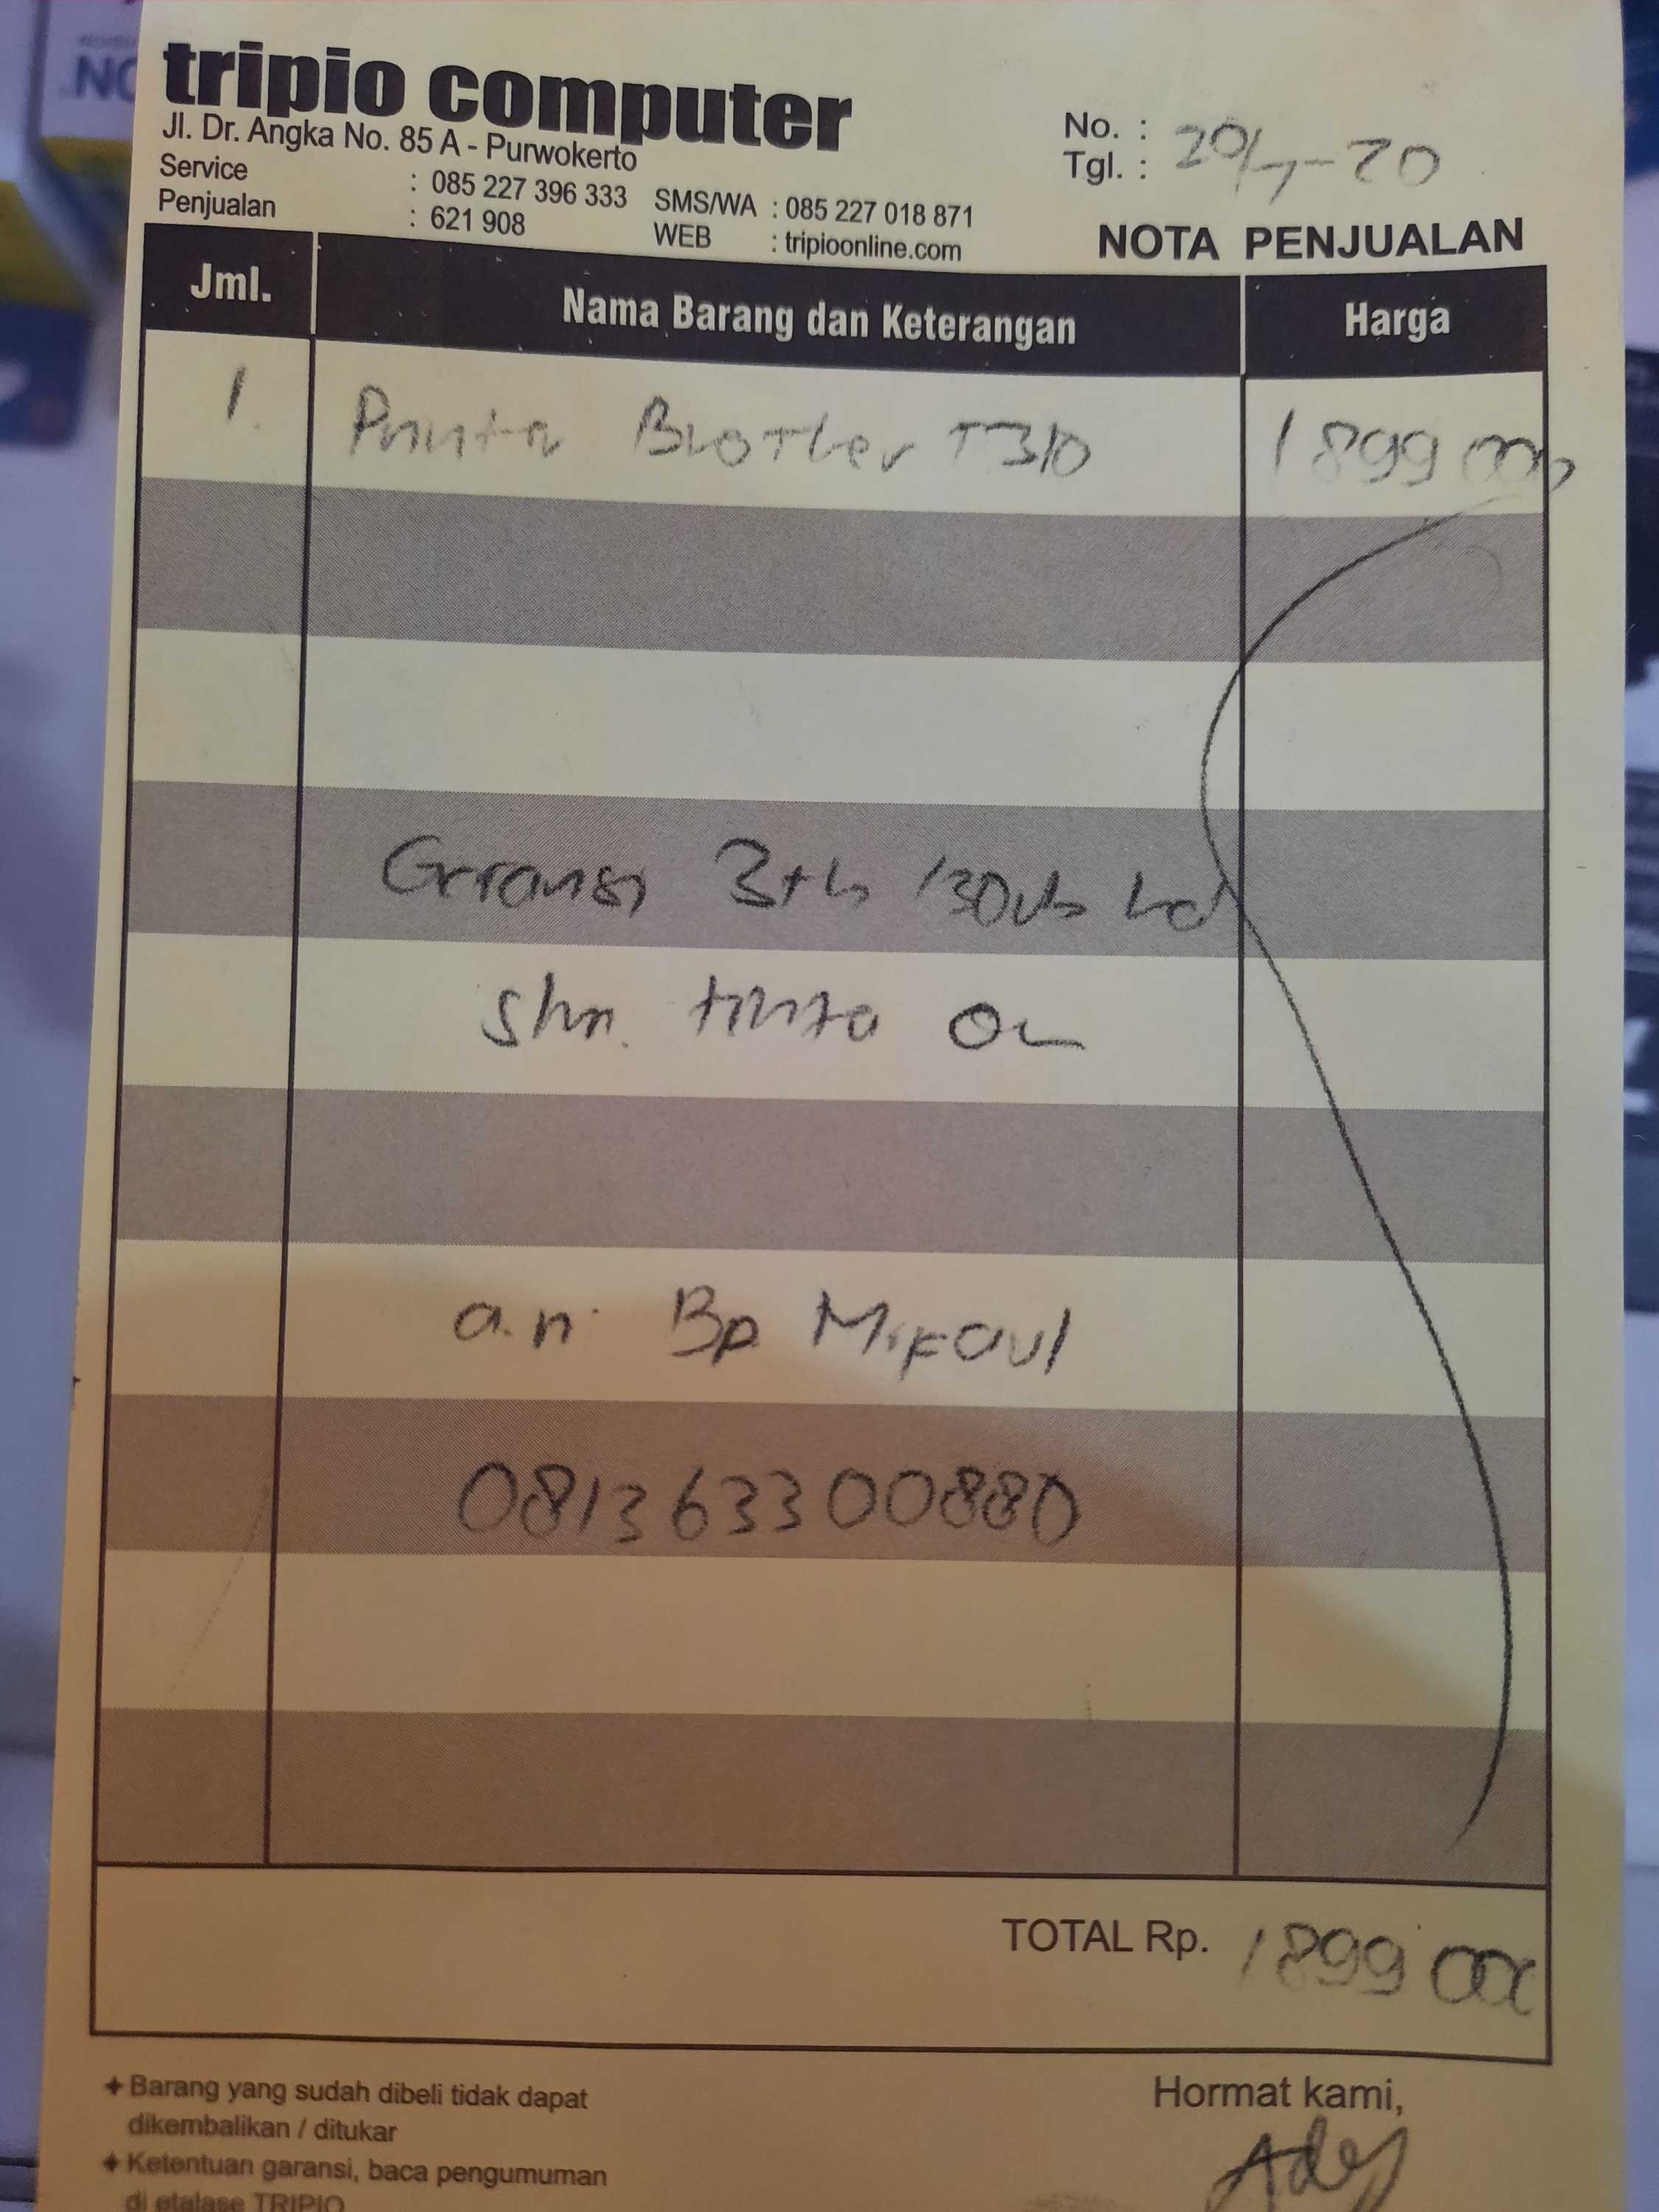 tripio computer
Jl. Dr. Angka No. 85 A - Purwokerto
Service : 085 227 396 333 SMS/WA : 085 227 018 871
Penjualan : 621 908 WEB : tripioonline.com
No. :
Tgl. : 20/7-20
NOTA PENJUALAN
Jml. Nama Barang dan Keterangan Harga
1. Printer Brother T310 1899 000
Garansi 3th
tinta
a.n. Bp Mifaul
081363300880
TOTAL Rp. 1899 000
+ Barang yang sudah dibeli tidak dapat
dikembalikan / ditukar
+ Ketentuan garansi, baca pengumuman
di etalase TRIPIO
Hormat kami,